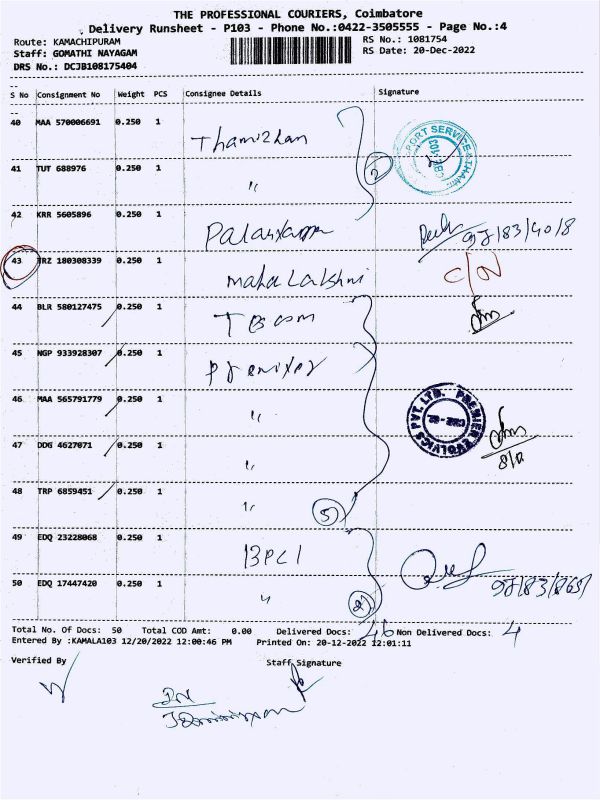 THE PROFESSIONAL COURIERS, Coimbatore
Delivery Runsheet - P103 - Phone No.:0422-3505555 - Page No.:4
Route: KAMACHIPURAM
RS No.: 1081754
Staff: GOMATHI NAYAGAM
RS Date: 20-Dec-2022
DRS No.: DCJB108175404
S No Consignment No Weight PCS Consignee Details Signature
40 MAA 570006691 0.250 1 Thamizhan
41 TUT 688976 0.250 1 "
2
42 KRR 5605896 0.250 1
43 TRZ 180308339 0.250 1 maha Lakshmi
C/N
44 BLR 580127475 0.250 1
45 NGP 933928307 0.250 1 Premier
46 MAA 565791779 0.250 1 "
PREMIER EVOLVICS PVT. LTD.
47 DDG 4627071 0.250 1 "
48 TRP 6859451 0.250 1 "
5
49 EDQ 23228068 0.250 1 BPCl
50 EDQ 17447420 0.250 1 "
2
Total No. Of Docs: 50 Total COD Amt: 0.00 Delivered Docs: 46 Non Delivered Docs: 4
Entered By :KAMALA103 12/20/2022 12:00:46 PM Printed On: 20-12-2022 12:01:11
Verified By Staff Signature